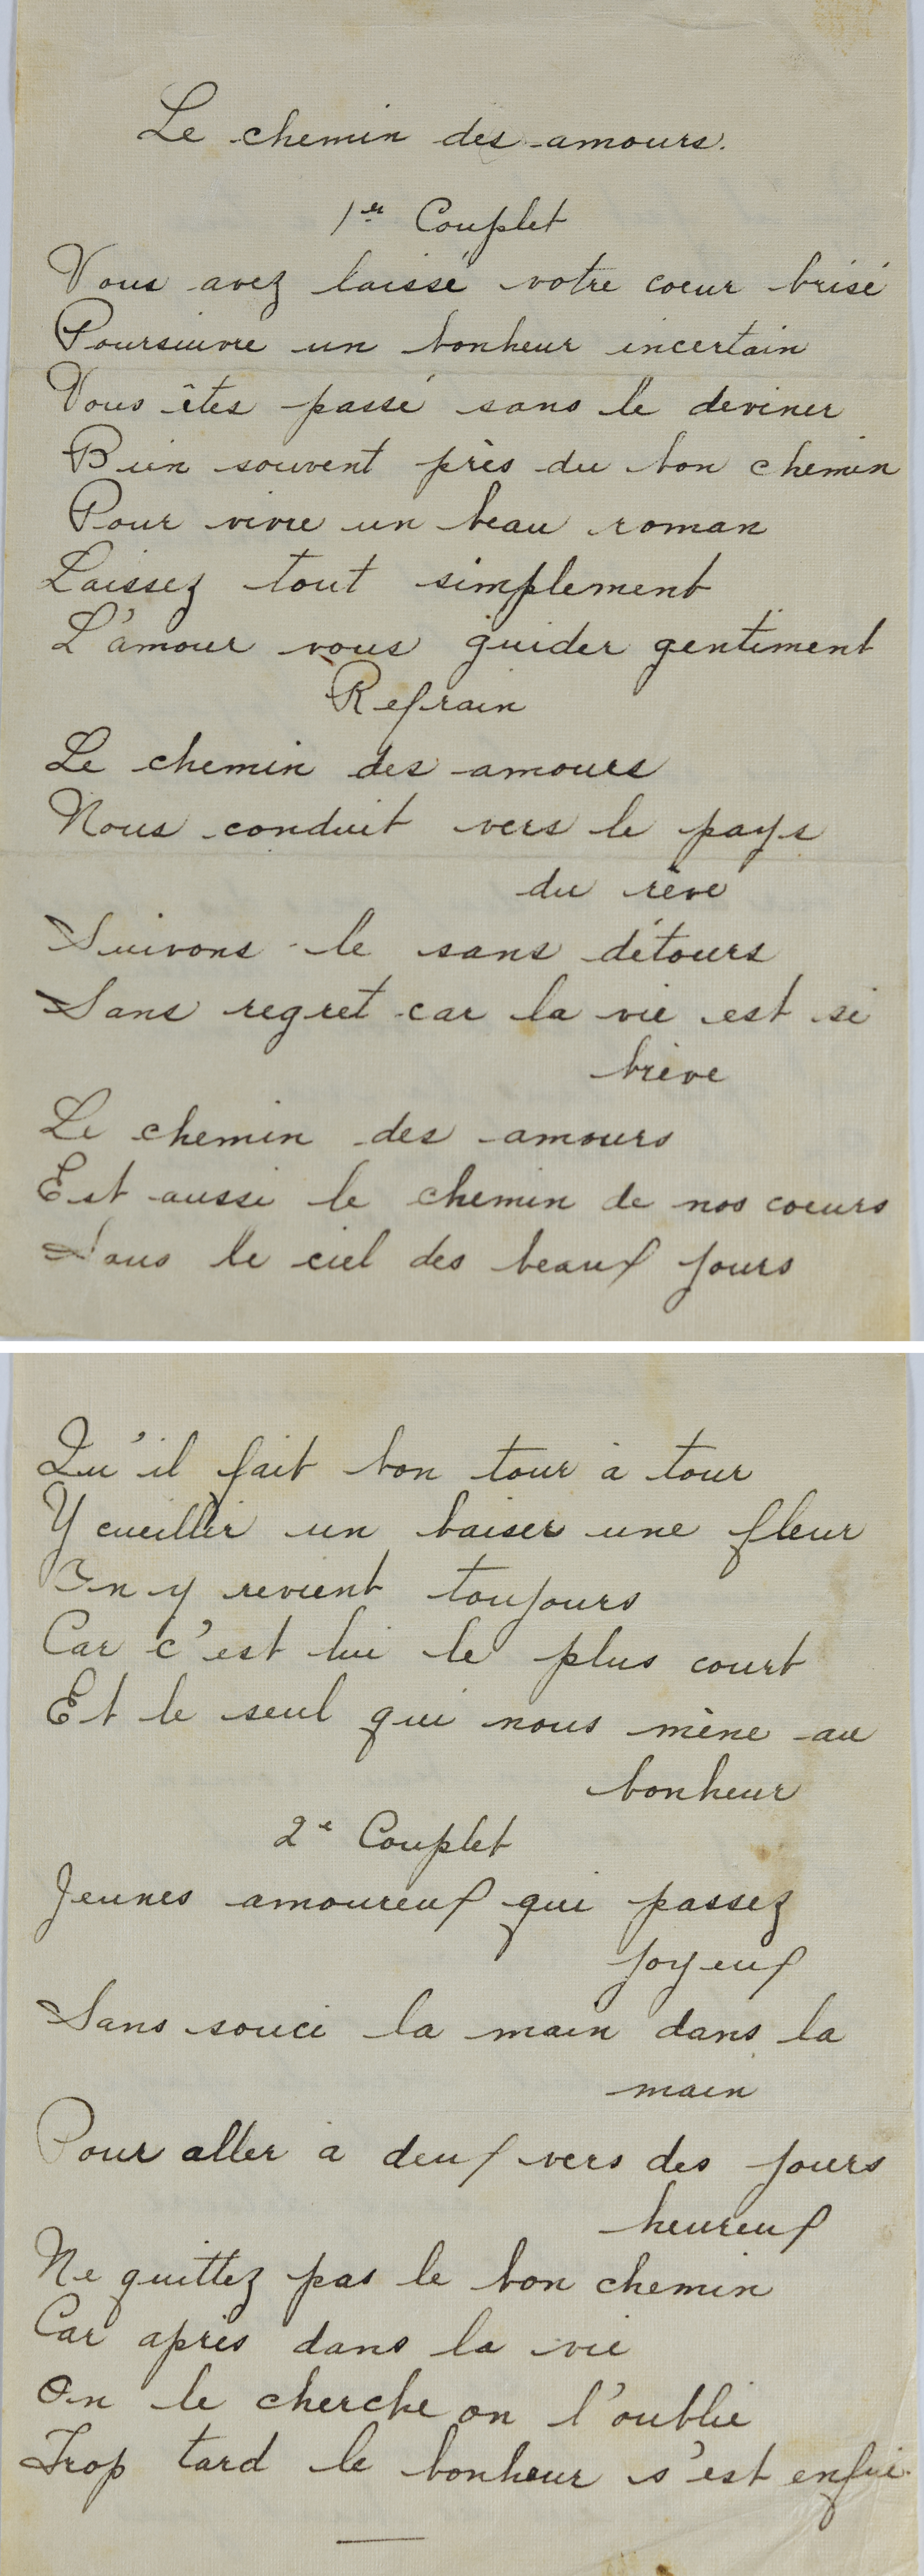 Le chemin des amours.
1er Couplet
Vous avez laissé votre coeur brisé
Poursuivre un bonheur incertain
Vous êtes passé sans le deviner
Bien souvent près du bon chemin
Pour vivre un beau roman
Laissez tout simplement
L'amour vous guider gentiment
Refrain
Le chemin des amours
Nous conduit vers le pays
du rêve
Suivons-le sans détours
Sans regret car la vie est si
brève
Le chemin des amours
Est aussi le chemin de nos coeurs
Sous le ciel des beaux jours
Qu'il fait bon tour à tour
Y cueillir un baiser une fleur
On y revient toujours
Car c'est lui le plus court
Et le seul qui nous mène au
bonheur
2e Couplet
Jeunes amoureux qui passez
joyeux
Sans souci la main dans la
main
Pour aller à deux vers des jours
heureux
Ne quittez pas le bon chemin
Car après dans la vie
On le cherche on l'oublie
Trop tard le bonheur s'est enfui.